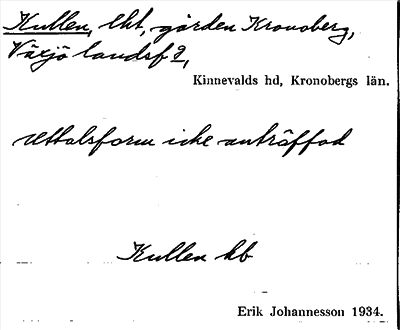 Kullen, lht, gården Kronoberg,
Växjö landsf 9,
Kinnevalds hd, Kronobergs län.
uttalsform icke anträffad
Kullen hb
Erik Johannesson 1934.